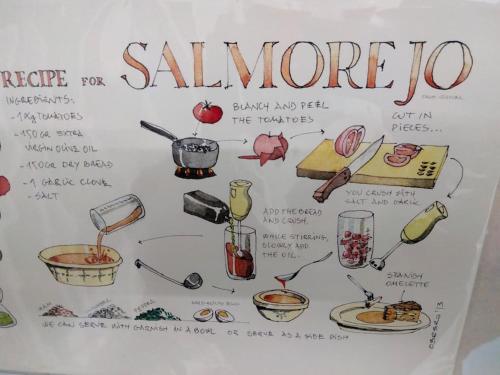 RECIPE FOR SALMOREJO
INGREDIENTS:
- 1 Kg TOMATOES
- 150 gr EXTRA
VIRGIN OLIVE OIL
- 150 gr DRY BREAD
- 1 GARLIC CLOVE
- SALT
BLANCH AND PEEL
THE TOMATOES
CUT IN
PIECES...
YOU CRUSH WITH
SALT AND GARLIC
ADD THE BREAD
AND CRUSH.
WHILE STIRRING,
SLOWLY ADD
THE OIL.
SPANISH
OMELETTE
HAM
PEPPER
HARD-BOILED EGGS
WE CAN SERVE WITH GARNISH IN A BOWL OR SERVE AS A SIDE DISH